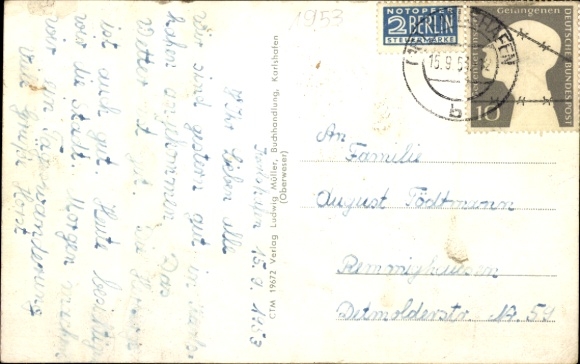 1953
NOTOPFER
2 BERLIN
STEUERMARKE
Gefangenen
DEUTSCHE BUNDESPOST
10
15.9.53
b
Karlshafen 15.9.1953
Ihr Lieben alle
Wir sind gestern gut in Karls-
hafen angekommen. Das
Wetter ist gut, die
ist auch gut. Heute
wir die Stadt. Morgen machen
wir
Viele Grüße Horst
CTM 19672 Verlag Ludwig Müller, Buchhandlung, Karlshafen
(Oberweser)
An
Familie
August Tödtmann
Remmighausen
Detmolderstr. N.A. 59